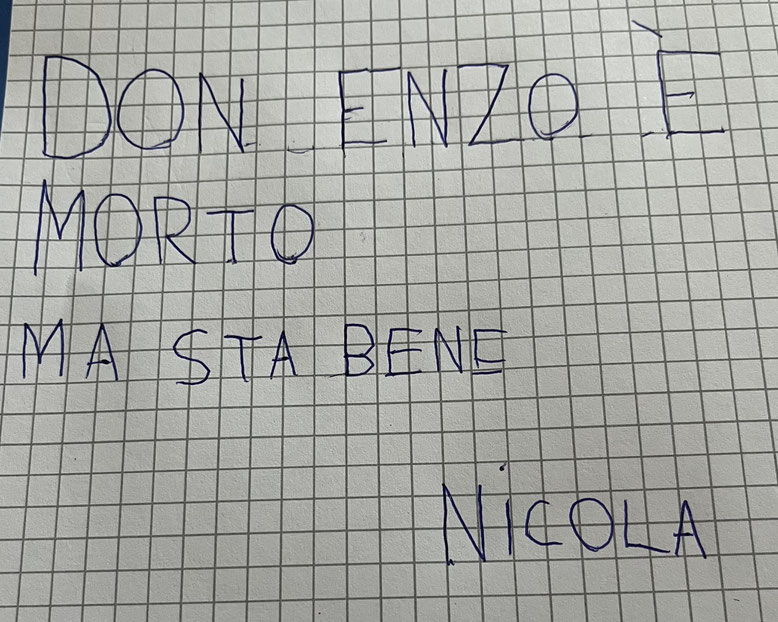 DON ENZO È
MORTO
MA STA BENE
NiCOLA